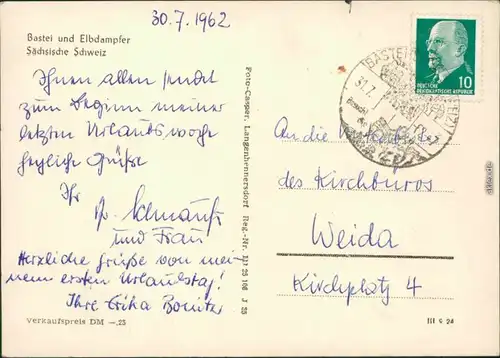 30.7.1962
Bastei und Elbdampfer
Sächsische Schweiz
Ihnen allen sendet
zum Beginn meiner
letzten Urlaubswoche
herzliche Grüße
Ihr
und Frau
Herzliche Grüße von mei-
nem ersten Urlaubstag!
Ihre Erika
Verkaufspreis DM -,25
Foto-Casper, Langenhennersdorf Reg.-Nr.
BASTEI
31.7.
DEUTSCHE
DEMOKRATISCHE REPUBLIK
10
An die
des Kirchbüros
Weida
Kirchplatz 4
III 9 24